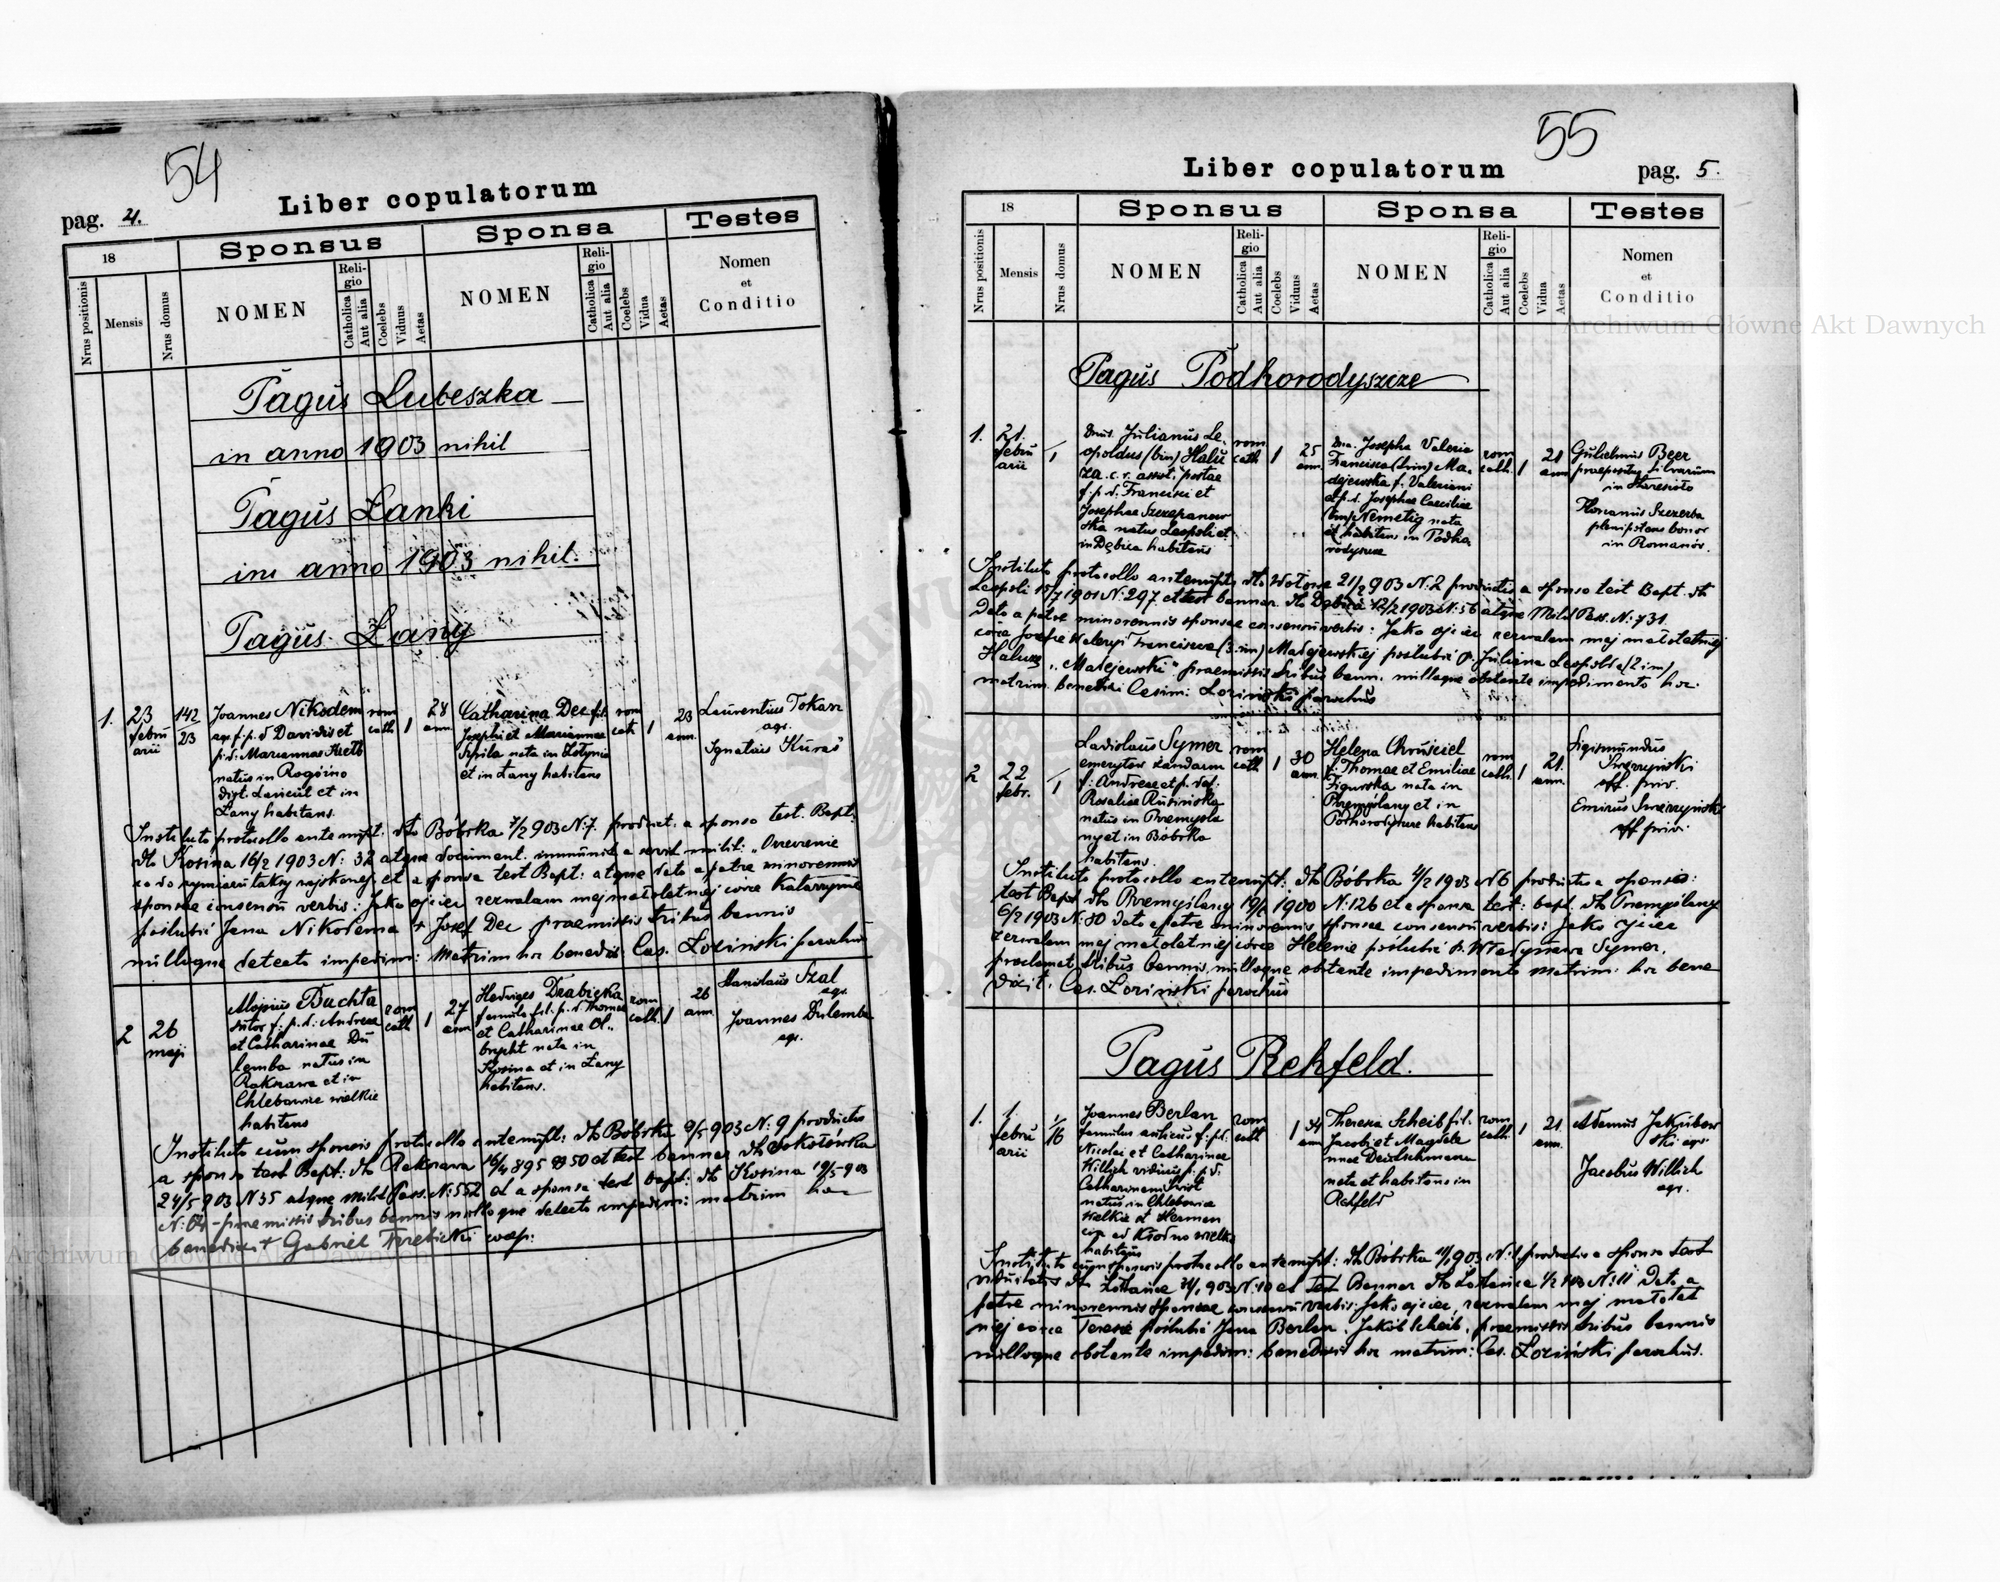 54
Liber copulatorum
pag. 4.
18
Sponsus
Sponsa
Testes
Nrus positionis
Mensis
Nrus domus
NOMEN
Religio
Catholica
Aut alia
Coelebs
Viduus
Aetas
NOMEN
Religio
Catholica
Aut alia
Coelebs
Vidua
Aetas
Nomen
et
Conditio
Pagus Lubeszka
in anno 1903 nihil
Pagus Łanki
in anno 1903 nihil.
Pagus Łany
1.
23
febru
arii
142
23
Joannes Nikodem
agr. f. p. d. Davidis et
p. d. Mariannae
natus in Rogóżno
distr. Łańcut et in
Łany habitans.
rom
cath
1
28
ann.
Catharina Dec fil.
Josephi et Mariannae
nata in
et in Łany habitans
rom
cath
1
23
ann.
Laurentius Tokarz
agr.
Ignatius Kuraś
Instituto protocollo antenupt. dto Bóbrka 7/2 903 N: 7. product. a sponso test. Bapt.
dto Kosina 16/2 1903 N: 32 atque document. immunit a servit milit: „Orzeczenie
co do wymiaru taksy wojskowej, et a sponsa test Bapt: atque dato a patre minorennis
sponsae consensu verbis: Jako ojciec zezwalam mej małoletniej córce Katarzynie
poślubić Jana Nikodema + Josef Dec praemissis tribus bannis
nulloque detecto impedim: matrim hoc benedix: Caes. Łoziński parochus
2
26
maji
Aloysius Buchta
sutor f. p. d. Andreae
et Catharinae Du
lemba natus in
Rakszawa et in
Chlebowice wielkie
habitans
rom
cath
1
27
ann
Hedviges Drabicka
famula fil. p. d. Thomae
et Catharinae Ol„
brycht nata in
Kosina et in Łany
habitans.
rom
cath.
1
26
ann.
Stanislaus Szal
agr.
Joannes Dulemba
agr.
Instituto cum sponsis protocollo antenupt: dto Bóbrka 9/5 903 N: 9 productis
a sponso test Bapt: dto Rakszawa 16/4 895 N 50 et test bannor dto Sokołówka
24/5 903 N 35 atque Milit Pass. N: 552 et a sponsa test bapt: dto Kosina 19/5 903
N: 64 - praemissis tribus bannis nulloque detecto impedim: matrim hoc
benedixit Gabriel coop:
55
Liber copulatorum
pag. 5.
18
Sponsus
Sponsa
Testes
Nrus positionis
Mensis
Nrus domus
NOMEN
Religio
Catholica
Aut alia
Coelebs
Viduus
Aetas
NOMEN
Religio
Catholica
Aut alia
Coelebs
Vidua
Aetas
Nomen
et
Conditio
Archiwum Główne Akt Dawnych
Pagus Podhorodyszcze
1.
21.
febru
arii
1
Dnus. Julianus Le„
opoldus (bin) Halu
za c. r. assist. postae
f. p. d. Francisci et
Josephae Szczepanow
ska natus Leopoli et
in Dębica habitans
rom
cath
1
25
ann.
Dna. Josepha Valeria
Francisca (trin) Ma„
dejewska f. Valeriani
et p. d. Josephae Caeciliae
(bin) Nemetig nata
et habitans in Podho
rodyszcze
rom
cath.
1
21
ann
Gulielmus Beer
praepositus silvarum
in Staresioło
Florianus Szczerba
plenipotens bonor
in Romanów.
Instituto protocollo antenupt. dto 21/2 903 N: 2 productis a sponso test Bapt. dto
Leopoli 1901 N: 297 et test bannor. dto Dębica 12/2 1903 N: 56 atque Milit Pass. N: 731.
Dato a patre minorennis sponsae consensu verbis: Jako ojciec zezwalam mej małoletniej
córce Józefie Waleryi Franciszce (3-im) Madejewskiej poślubić p. Juliana Leopolda (2 im)
Haluzę „Madejewski" praemissis tribus bann. nulloque obstante impedimento hoc
matrim. benedixi Caesim: Łoziński parochus
2
22
febr.
1
Ladislaus Symer
emerytow żandarm
f: Andreae et p. def.
Rosaliae Rusińska
natus in Przemyśla
ny et in Bóbrka
habitans.
rom
cath
1
30
ann.
Helena Chruściel
f. Thomae et Emiliae
Figurska nata in
Przemyślany et in
Podhorodyszcze habitans
rom
cath
1
21.
ann.
Sigismundus
off. priv.
off priv.
Instituto protocollo antenupt: dto Bóbrka 4/2 1903 N 6 productis a sponso:
test Bapt dto Przemyślany 1900 N: 126 et a sponsa test: bapt. dto Przemyślany
6/2 1903 N: 80 dato a patre minorennis sponsae consensu verbis: Jako ojciec
zezwalam mej małoletniej córce Helenie poślubić p. Władysława Symer.
proclamat. tribus bannis, nulloque obstante impedimento matrim: hoc bene
dixit. Caes. Łoziński parochus
Pagus Rehfeld.
1.
1.
febru
arii
1/16
Joannes Berlan
famulus f: p. d:
Nicolai et Catharinae
Willich viduus p: p. d.
Catharinam
natus in Chlebowice
Wielkie et
habitans
rom
cath
1
34
ann
Theresia Scheib fil.
Jacobi et Magdale
nnae Deutschmann
nata et habitans in
Rehfeld
rom
cath.
1
21.
ann.
Adamus Jakubow
ski agr
Jacobus Willich
agr.
Instituto cum sponsis protocollo antenupt: dto Bóbrka 903 N: 1 productis a sponso test
viduitatis dto 903 N: 10 et test Bannor dto 1/2 903 N: 11 Dato a
patre minorennis sponsae consensu verbis: Jako ojciec, zezwalam mej małolet
niej córce Teresie poślubić Jana Berlan. Jakób Scheib, praemissis tribus bannis
nulloque obstante impedim: benedixit hoc matrim: Caes. Łoziński parochus.
Archiwum Główne Akt Dawnych